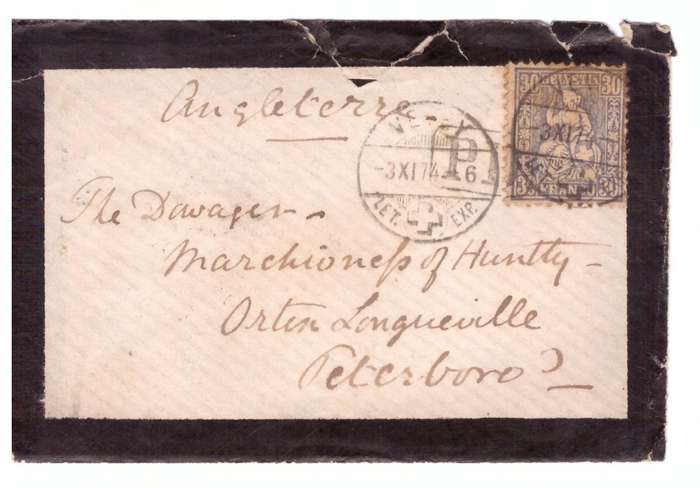 Angleterre
30 HELVETIA 30
VEVEY
-3 XI 74 - 6
LET. EXP.
P
-3 XI 74
The Dowager
Marchioness of Huntly
Orton Longueville
Peterboro'